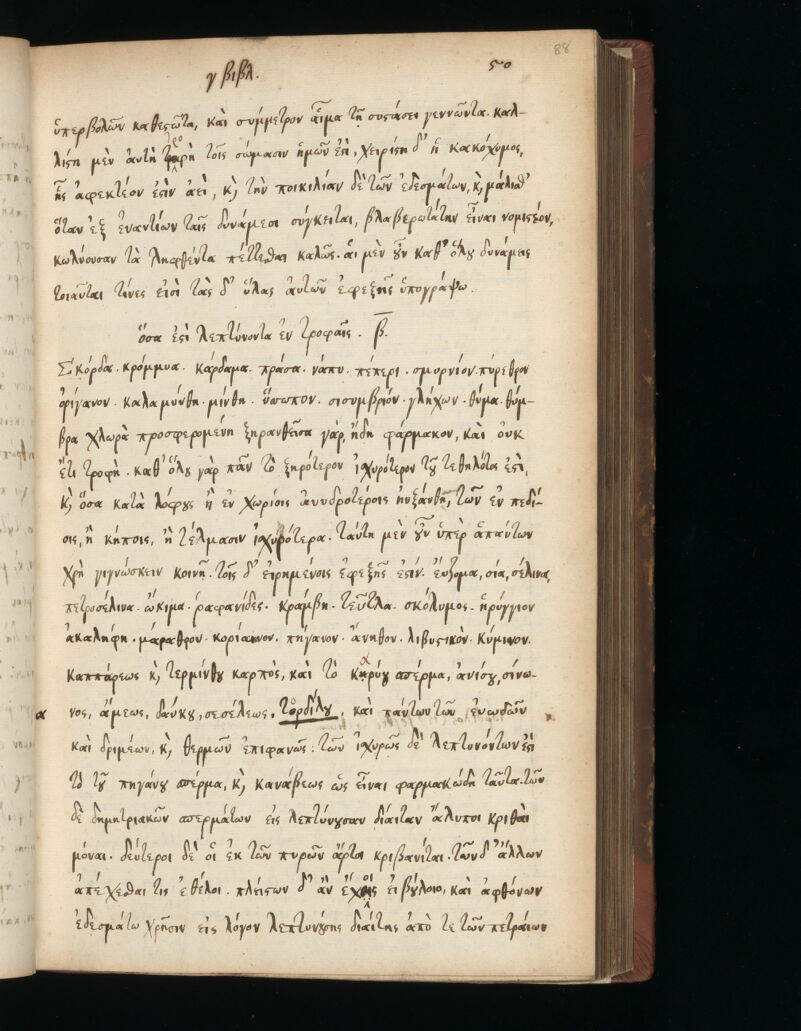 88
γ βιβλ. 50
ὑπερβολῶν καθεστῶτα, καὶ σύμμετρον αἷμα τῇ συστάσει γεννῶντα. καλ-
λίστη μὲν αὐτὴ τοῖς σώμασιν ἡμῶν ἐστὶ, χειρίστη δ' ἡ κακόχυμος,
ἧς ἀφεκτέον ἐστὶν ἀεὶ, κ, τὴν ποικιλίαν δὲ τῶν ἐδεσμάτων, κ, μάλισθ'
ὅταν ἐξ ἐναντίων ταῖς δυνάμεσι σύγκειται, βλαβερωτάτην εἶναι νομιστέον,
κωλύουσαν τὰ ληφθέντα πέττεσθαι καλῶς. αἱ μὲν οὖν καθ' ὅλου δυνάμεις
τοιαῦται τινες εἰσὶ τὰς δ' ὕλας αὐτῶν ἐφεξῆς ὑπογράψω.
ὅσα ἐστὶ λεπτύνοντα ἐν τροφαῖς. β.
Σκόρδα. κρόμμυα. κάρδαμα. πράσα. νάπυ. πέπερι. σμυρνίον. πύρεθρον
ὀρίγανον. καλαμίνθη. μίνθη. ὕσωπον. σισυμβριόν. γλήχων. θύμα. θύμ-
βρα χλωρὰ προσφερομένη ξηρανθεῖσα γὰρ, ἤδη φάρμακον, καὶ οὐκ
ἔτι τροφὴ. καθ' ὅλου γὰρ πᾶν τὸ ξηρότερον ἰσχυρότερον τοῦ τεθηλότος ἐστὶ,
κ, ὅσα κατὰ λόφους ἢ ἐν χωρίοις ἀνυδροτέροις ηὐξάνθη, τῶν ἐν πεδί-
οις, ἢ κήποις, ἢ τέλμασιν ἰσχυρότερα. ταύτη μὲν οὖν ὑπὲρ ἁπάντων
χρὴ γιγνώσκειν κοινῇ. τοῖς δ' εἰρημένοις ἐφεξῆς ἐστίν. εὔζομα, σία, σέλινα,
πετροσέλινα. ὤκιμα. ῥαφανίδες. κράμβη. τεῦτλα. σκόλυμος. ἠρύγγιον
ἀκαλήφη. μάραθρον. κορίαννον. πήγανον. ἄνηθον. λιβυστικὸν. κύμινον.
καππάρεως κ, τερμίνθου καρπὸς, καὶ τὸ σπέρμα, ἀνίσου, σίνω-
α νος, ἄμεως, δαύκου, σεσέλεως, τορδίλου, καὶ πάντων τῶν εὐωδῶν
καὶ δριμέων, κ, θερμῶν ἐπιφανῶς: τῶν ἰσχυρῶς δὲ λεπτυνόντων ἐστὶ
τὸ τοῦ πηγάνου σπέρμα, κ, κανάβεως ὡς εἶναι φαρμακώδη ταῦτα. τῶν
δὲ δημητριακῶν σπερμάτων εἰς λεπτύνουσαν δίαιταν ἄλυποι κριθαὶ
μόναι. δεύτεροι δὲ οἱ ἐκ τῶν πυρῶν ἄρτοι κριβανῖται. τῶν δ' ἄλλων
ἀπέχεσθαι τις ἐθέλοι. πλείστων δ' ἂν ἔχοις εἰ βούλοιο, καὶ ἀφθόνων
ἐδεσμάτω χρῆσιν εἰς λόγον λεπτυνούσης διαίτης ἀπὸ τε τῶν πετραίων